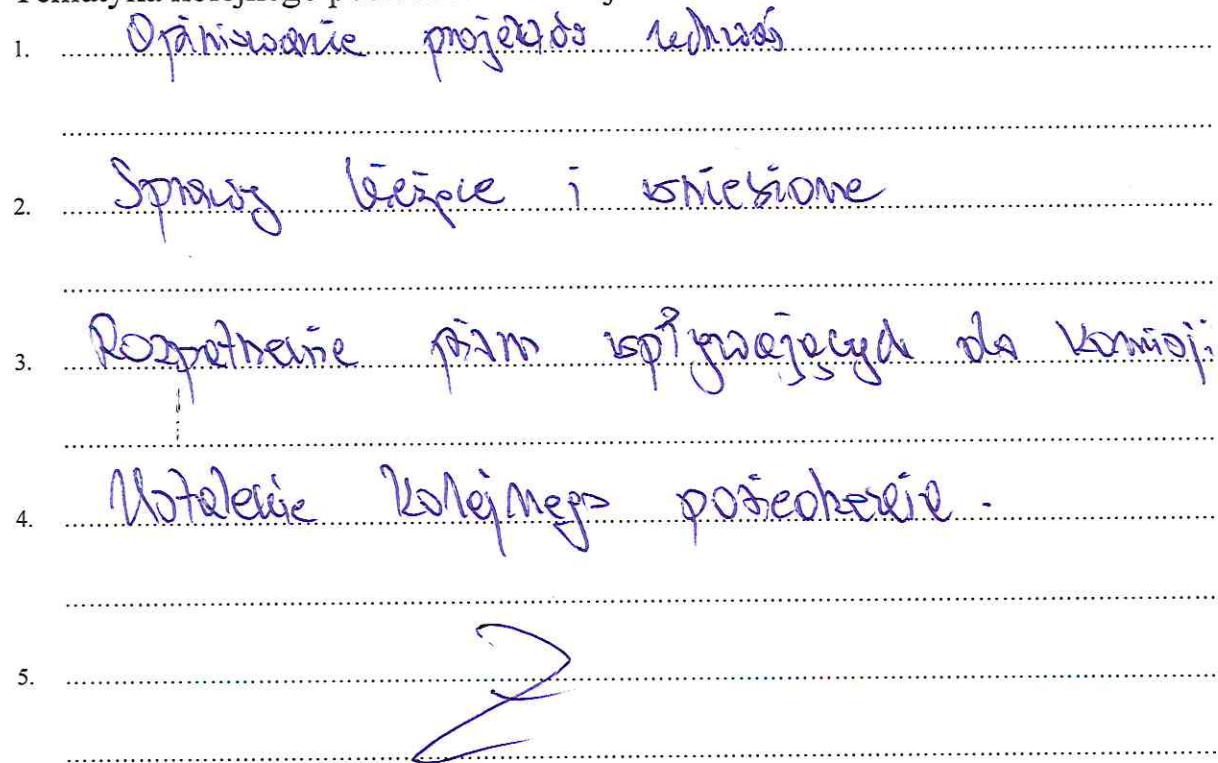 Tematyka kolejnego
1. Opiniowanie projektów uchwał
2. Sprawy bieżące i wniesione
3. Rozpatrzenie pism wpływających do Komisji.
4. Ustalenie kolejnego posiedzenia.
5.